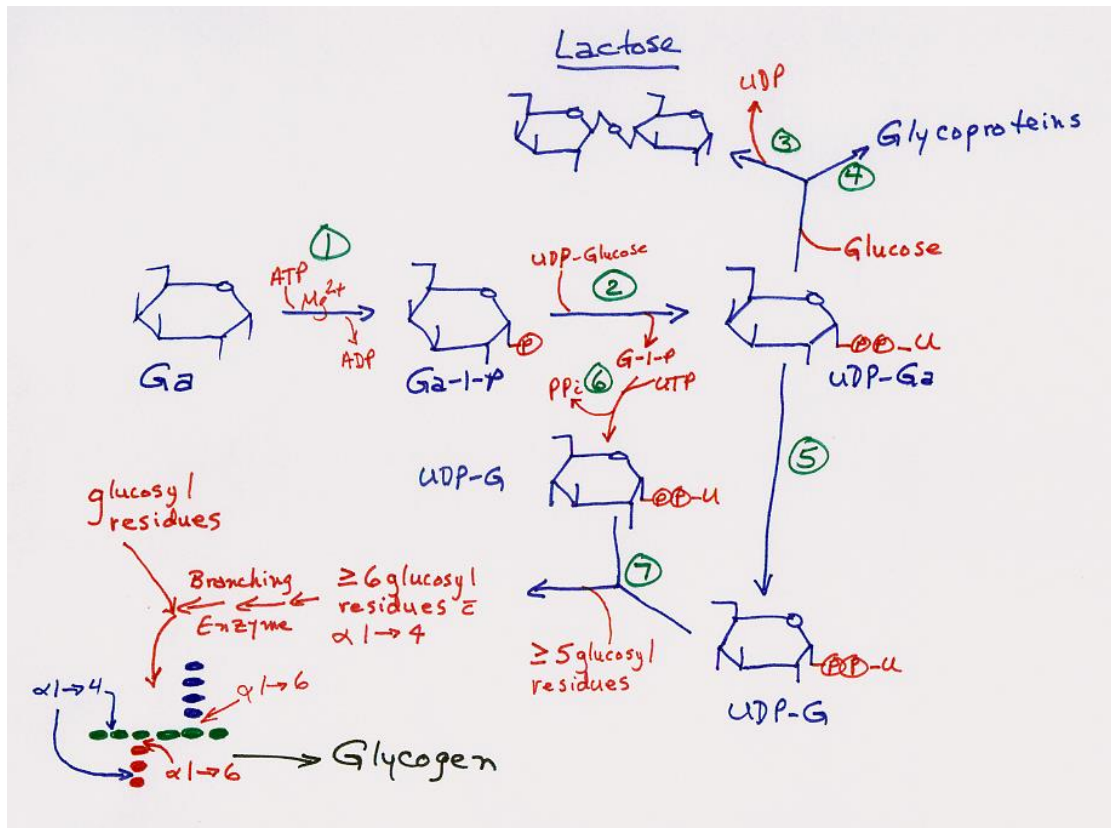 Lactose
UDP
③
Glycoproteins
④
Glucose
①
ATP
Mg2+
ADP
UDP-Glucose
②
G-1-P
Ga
Ga-1-P
P
P P-U
UDP-Ga
PPi
⑥
UTP
⑤
UDP-G
P P-U
glucosyl
residues
Branching
Enzyme
≥6 glucosyl
residues c̄
α 1→4
⑦
≥5 glucosyl
residues
P P-U
UDP-G
α1→4
α 1→6
α1→6
Glycogen